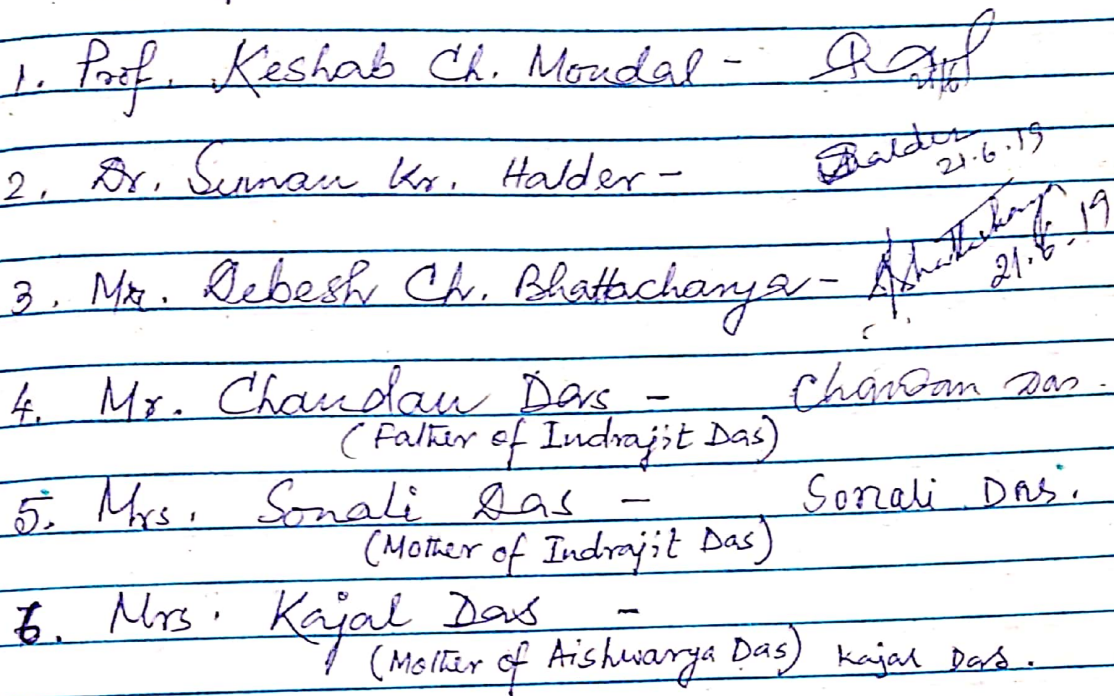 1. Prof. Keshab Ch. Mondal -
2. Dr. Suman Kr. Halder - Halder 21.6.19
3. Mr. Debesh Ch. Bhattacharya - Bhattacharya 21.6.19
4. Mr. Chandan Das - Chandan Das.
(Father of Indrajit Das)
5. Mrs. Sonali Das - Sonali Das.
(Mother of Indrajit Das)
6. Mrs. Kajal Das -
(Mother of Aishwarya Das) Kajal Das.